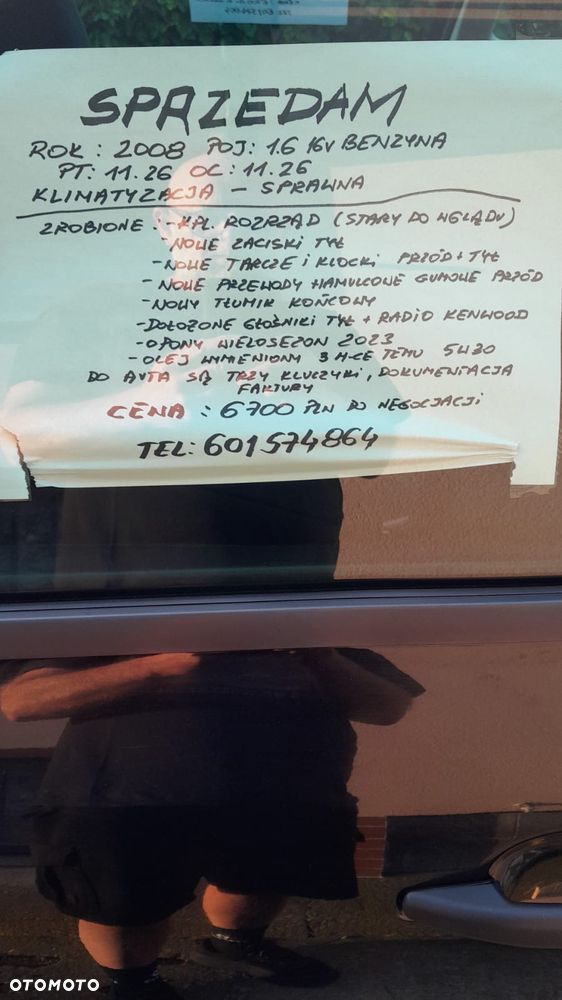 SPRZEDAM
ROK : 2008 POJ: 1.6 16V BENZYNA
PT: 11.26 OC: 11.26
KLIMATYZACJA - SPRAWNA
ZROBIONE : - KPL. ROZRZĄD (STARY DO WGLĄDU)
- NOWE ZACISKI TYŁ
- NOWE TARCZE I KLOCKI PRZÓD + TYŁ
- NOWE PRZEWODY HAMULCOWE GUMOWE PRZÓD
- NOWY TŁUMIK KOŃCOWY
- DOŁOŻONE GŁOŚNIKI TYŁ + RADIO KENWOOD
- OPONY WIELOSEZON 2023
- OLEJ WYMIENIONY 3 M-CE TEMU 5W30
DO AUTA SĄ TRZY KLUCZYKI, DOKUMENTACJA
FAKTURY
CENA : 6700 PLN DO NEGOCJACJI
TEL: 601574864
OTOMOTO